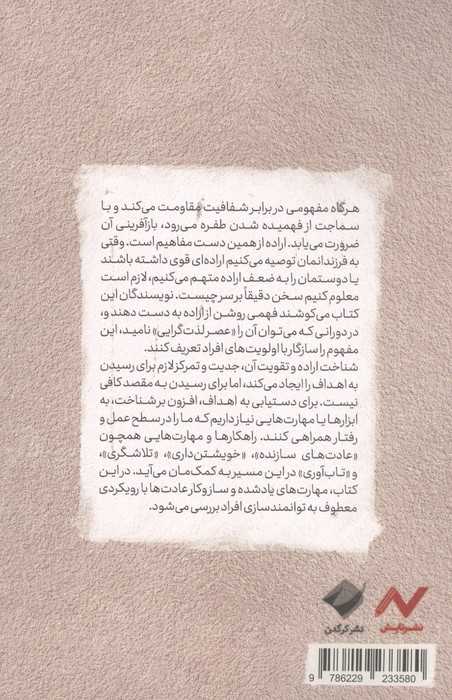 هرگاه مفهومی در برابر شفافیت مقاومت می‌کند و با
سماجت از فهمیده شدن طفره می‌رود، بازآفرینی آن
ضرورت می‌یابد. اراده از همین دست مفاهیم است. وقتی
به فرزندانمان توصیه می‌کنیم اراده‌ای قوی داشته باشند
یا دوستمان را به ضعف اراده متهم می‌کنیم، لازم است
معلوم کنیم سخن دقیقاً بر سر چیست. نویسندگان این
کتاب می‌کوشند فهمی روشن از اراده به دست دهند، و
در دورانی که می‌توان آن را «عصر لذت‌گرایی» نامید، این
مفهوم را سازگار با اولویت‌های افراد تعریف کنند.
شناخت اراده و تقویت آن، جدیت و تمرکز لازم برای رسیدن
به اهداف را ایجاد می‌کند، اما برای رسیدن به مقصد کافی
نیست. برای دستیابی به اهداف، افزون بر شناخت، به
ابزارها یا مهارت‌هایی نیاز داریم که ما را در سطح عمل و
رفتار همراهی کنند. راهکارها و مهارت‌هایی همچون
«عادت‌های سازنده»، «خویشتن‌داری»، «تلاشگری»،
و «تاب‌آوری» در این مسیر به کمک‌مان می‌آید. در این
کتاب، مهارت‌های یادشده و سازوکار عادت‌ها با رویکردی
معطوف به توانمندسازی افراد بررسی می‌شود.
نشر کرگدن
9 786229 233580